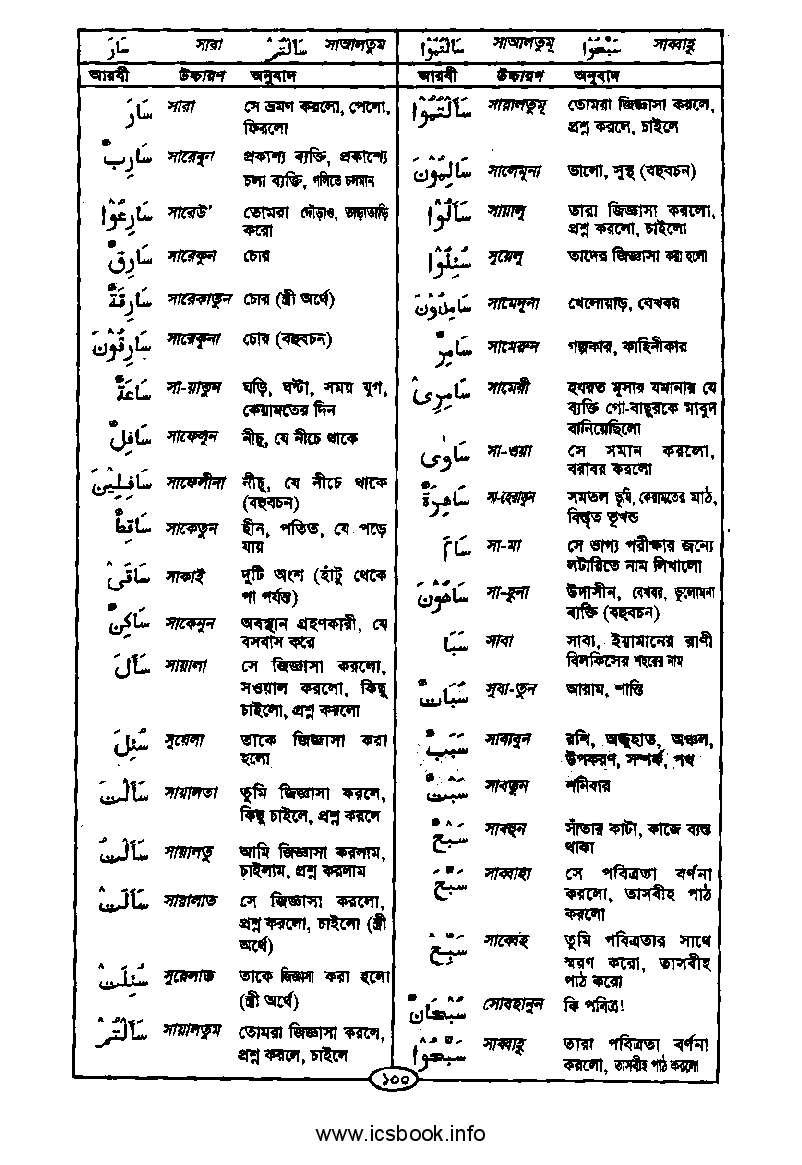 سَارَ সারা سَاَلْتُمْ সাআলতুম
আরবী উচ্চারণ অনুবাদ
سَارَ সারা সে ভ্রমণ করলো, পেলো,
ফিরলো
سَارِبٌ সারেবুন প্রকাশ্য ব্যক্তি, প্রকাশ্যে
চলা ব্যক্তি, গলিতে চলমান
سَارِعُوْا সারেউ' তোমরা দৌড়াও, তাড়াতাড়ি
করো
سَارِقٌ সারেকুন চোর
سَارِقَةٌ সারেকাতুন চোর (স্ত্রী অর্থে)
سَارِقُوْنَ সারেকুনা চোর (বহুবচন)
سَاعَةٌ সা-য়াতুন ঘড়ি, ঘন্টা, সময় যুগ,
কেয়ামতের দিন
سَافِلٌ সাফেলুন নীচু, যে নীচে থাকে
سَافِلِيْنَ সাফেলীনা নীচু, যে নীচে থাকে
(বহুবচন)
سَاقِطٌ সাকেতুন হীন, পতিত, যে পড়ে
যায়
سَاقَىْ সাকাই দুটি অংশ (হাঁটু থেকে
পা পর্যন্ত)
سَاكِنٌ সাকেনুন অবস্থান গ্রহণকারী, যে
বসবাস করে
سَاَلَ সায়ালা সে জিজ্ঞাসা করলো,
সওয়াল করলো, কিছু
চাইলো, প্রশ্ন করলো
سُئِلَ সুয়েলা তাকে জিজ্ঞাসা করা
হলো
سَاَلْتَ সায়ালতা তুমি জিজ্ঞাসা করলে,
কিছু চাইলে, প্রশ্ন করলে
سَاَلْتُ সায়ালতু আমি জিজ্ঞাসা করলাম,
চাইলাম, প্রশ্ন করলাম
سَاَلَتْ সায়ালাত সে জিজ্ঞাসা করলো,
প্রশ্ন করলো, চাইলো (স্ত্রী
অর্থে)
سُئِلَتْ সুয়েলাত তাকে জিজ্ঞাসা করা হলো
(স্ত্রী অর্থে)
سَاَلْتُمْ সায়ালতুম তোমরা জিজ্ঞাসা করলে,
প্রশ্ন করলে, চাইলে
سَاَلْتُمُوْا সাআলতুমূ سَبَّحُوْا সাব্বাহূ
আরবী উচ্চারণ অনুবাদ
سَاَلْتُمُوْا সায়ালতুমূ তোমরা জিজ্ঞাসা করলে,
প্রশ্ন করলে, চাইলে
سَالِمُوْنَ সালেমুনা ভালো, সুস্থ (বহুবচন)
سَاَلُوْا সায়ালু তারা জিজ্ঞাসা করলো,
প্রশ্ন করলো, চাইলো
سُئِلُوْا সুয়েলু তাদের জিজ্ঞাসা করা হলো
سَامِدُوْنَ সামেদুনা খেলোয়াড়, বেখবর
سَامِرٌ সামেরুন গল্পকার, কাহিনীকার
سَامِرِىْ সামেরী হযরত মূসার যমানার যে
ব্যক্তি গো-বাছুরকে মাবুদ
বানিয়েছিলো
سَاوٰى সা-ওয়া সে সমান করলো,
বরাবর করলো
سَاهِرَةٌ সা-হেরাতুন সমতল ভূমি, কেয়ামতের মাঠ,
বিস্তৃত ভূখন্ড
سَاهَمَ সা-মা সে ভাগ্য পরীক্ষার জন্যে
লটারিতে নাম লিখালো
سَاهُوْنَ সা-হুনা উদাসীন, বেখবর, ভুলোমনা
ব্যক্তি (বহুবচন)
سَبَا সাবা সাবা, ইয়ামানের রাণী
বিলকিসের শহরের নাম
سُبَاتٌ সুবা-তুন আরাম, শান্তি
سَبَبٌ সাবাবুন রশি, অজুহাত, অঞ্চল,
উপকরণ, সম্পর্ক, পথ
سَبْتٌ সাবতুন শনিবার
سَبْحٌ সাবহুন সাঁতার কাটা, কাজে ব্যস্ত
থাকা
سَبَّحَ সাব্বাহা সে পবিত্রতা বর্ণনা
করলো, তাসবীহ পাঠ
করলো
سَبِّحْ সাব্বেহ তুমি পবিত্রতার সাথে
স্মরণ করো, তাসবীহ
পাঠ করো
سُبْحَانٌ সোবহানুন কি পবিত্র!
سَبَّحُوْا সাব্বাহূ তারা পবিত্রতা বর্ণনা
করলো, তাসবীহ পাঠ করলো
১০০
www.icsbook.info